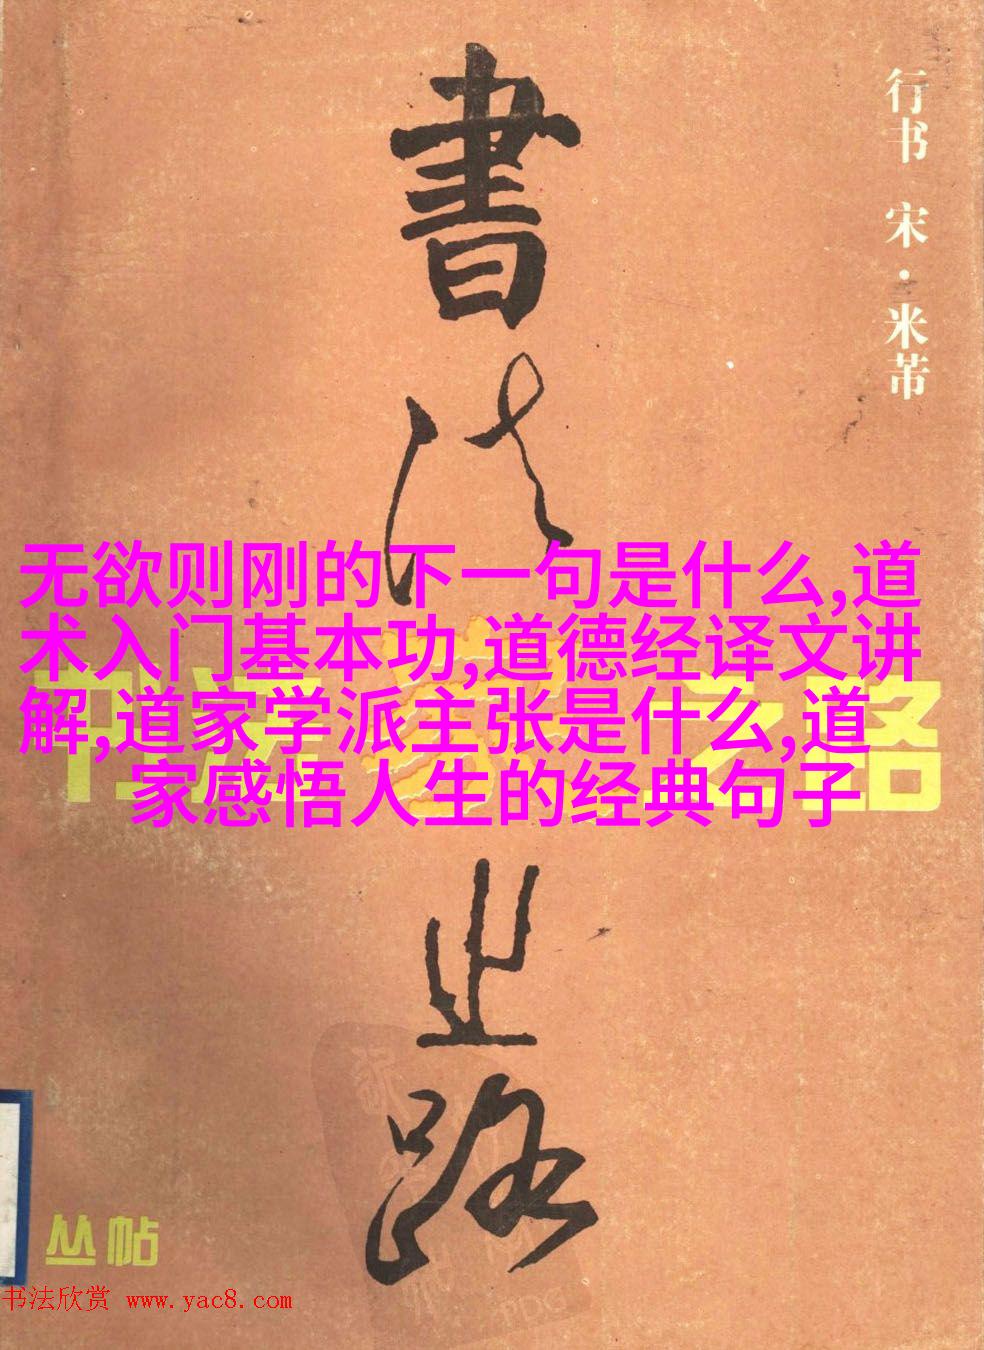 書法之路
行书 宋·米芾
无欲则刚的下一句是什么,道
术入门基本功,道德经译文讲
解,道家学派主张是什么,道
家感悟人生的经典句子
丛帖
书法欣赏 www.yac8.com